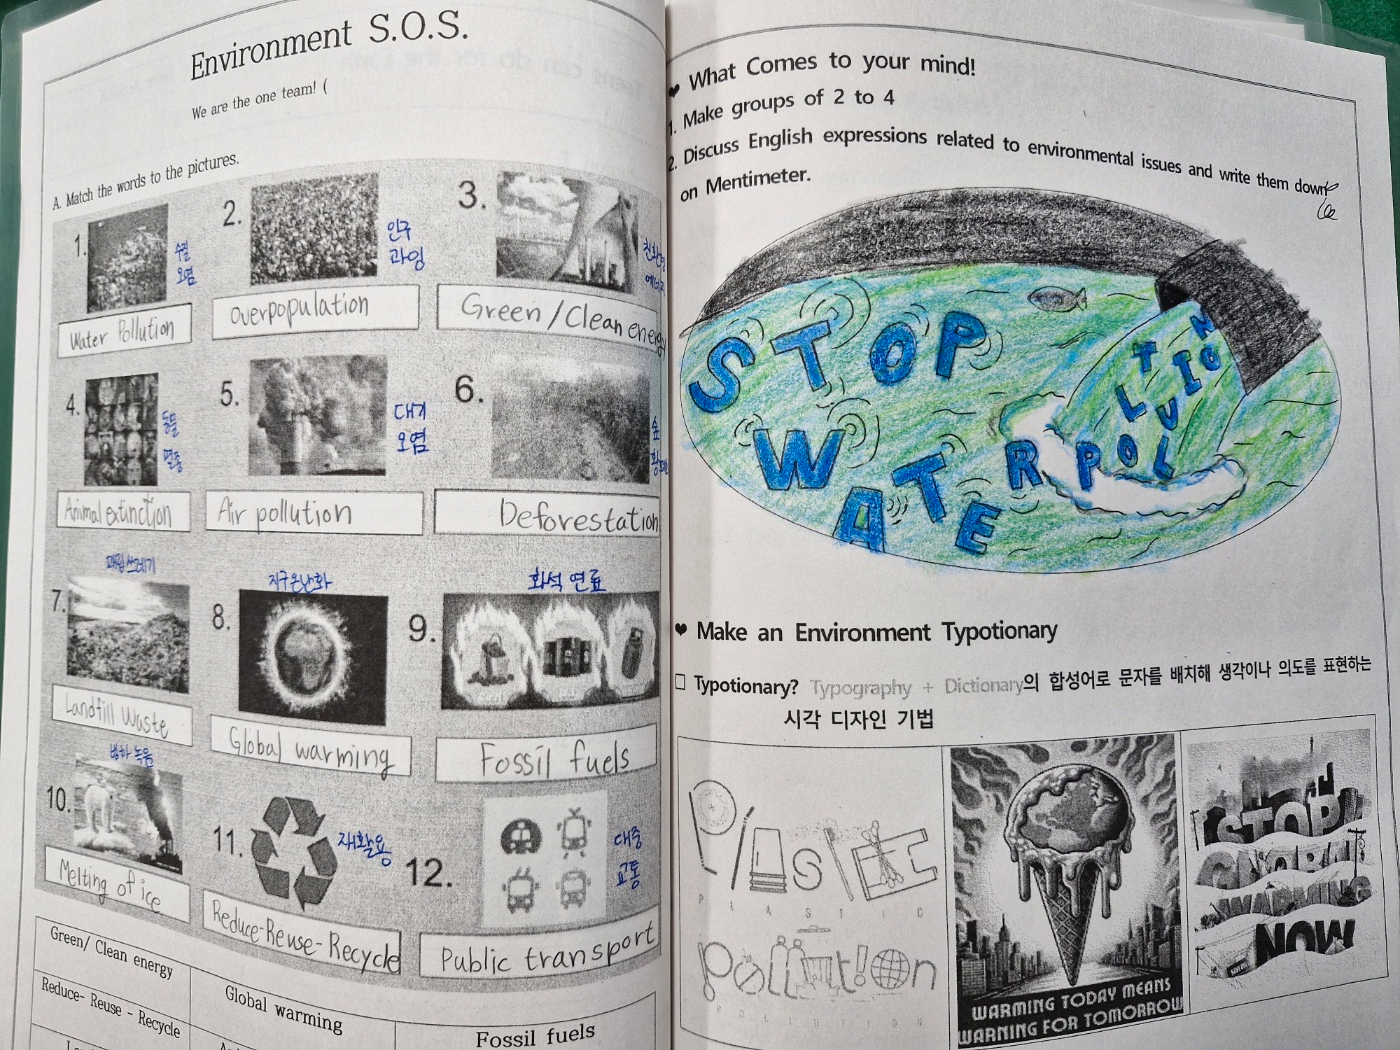 Environment S.O.S.
We are the one team! (
A. Match the words to the pictures.
1.
수질
오염
Water Pollution
2.
인구
과잉
Overpopulation
3.
Green/Clean energy
4.
동물
멸종
Animal extinction
5.
대기
오염
Air pollution
6.
숲
Deforestation
7.
매립 쓰레기
Landfill Waste
8.
지구온난화
Global warming
9.
화석 연료
Fossil fuels
10.
빙하 녹음
Melting of ice
11.
재활용
Reduce-Reuse-Recycle
12.
대중
교통
Public transport
Green/ Clean energy
Global warming
Fossil fuels
Reduce- Reuse - Recycle
♥ What Comes to your mind!
1. Make groups of 2 to 4
2. Discuss English expressions related to environmental issues and write them down
on Mentimeter.
STOP
WATER
POLLUTION
♥ Make an Environment Typotionary
□ Typotionary? Typography + Dictionary의 합성어로 문자를 배치해 생각이나 의도를 표현하는
시각 디자인 기법
PLASTIC
PLASTIC
pollution
POLLUTION
WARMING TODAY MEANS
WARNING FOR TOMORROW
STOP
GLOBAL
WARMING
NOW